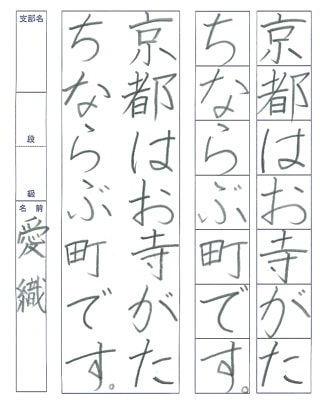 京都はお寺がた
ちならぶ町です。
京都はお寺がた
ちならぶ町です。
支部名
段
級
名前
愛織